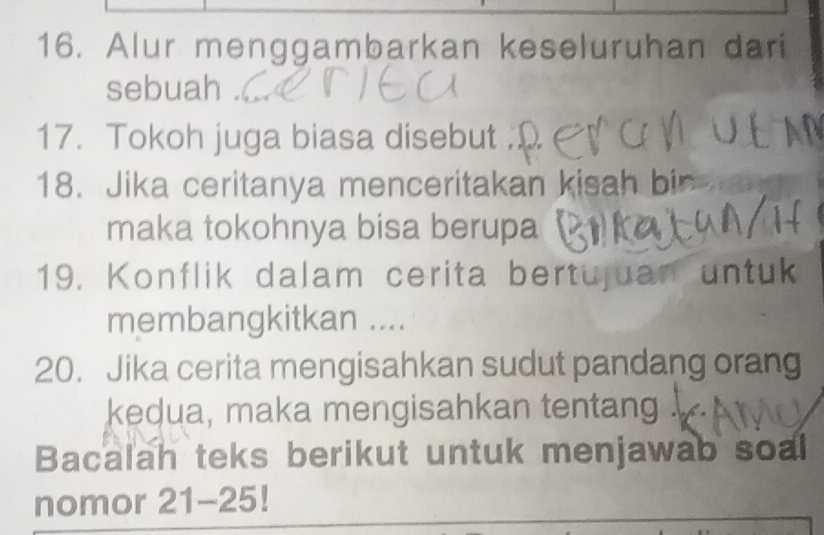 16. Alur menggambarkan keseluruhan dari
sebuah .... cerita
17. Tokoh juga biasa disebut .... peran
18. Jika ceritanya menceritakan kisah
maka tokohnya bisa berupa
19. Konflik dalam cerita bertujuan untuk
membangkitkan ....
20. Jika cerita mengisahkan sudut pandang orang
kedua, maka mengisahkan tentang .... KAMU
Bacalah teks berikut untuk menjawab soal
nomor 21–25!